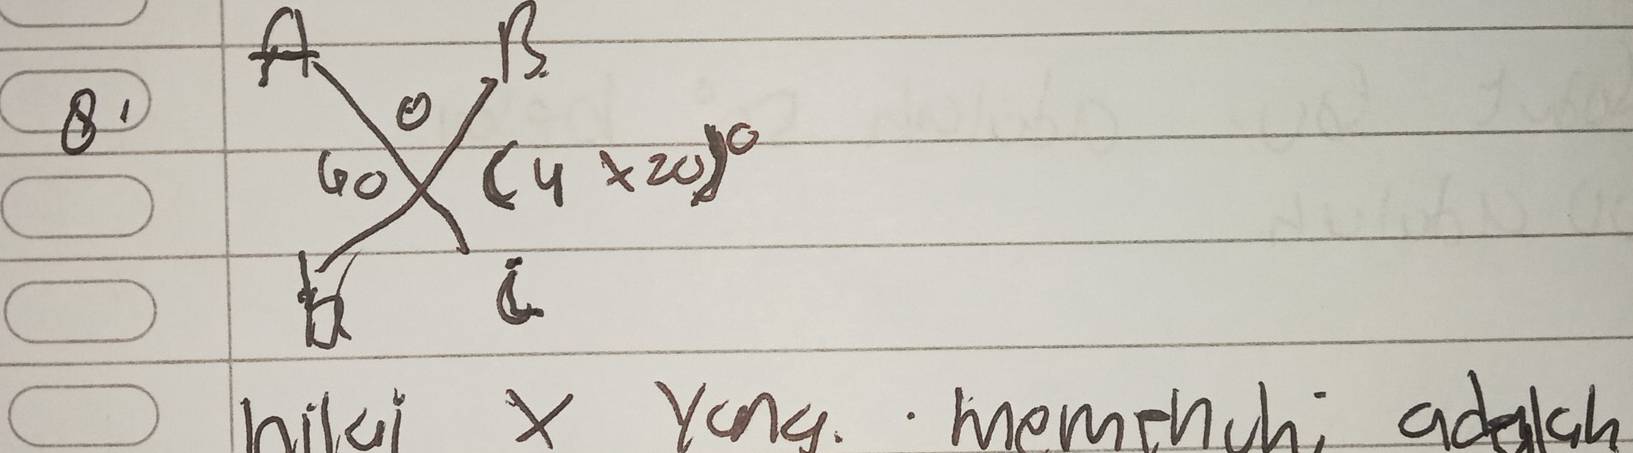 A B
8. O
60 (4 x 20)°
D C
nilai x yang. memenuhi adalah